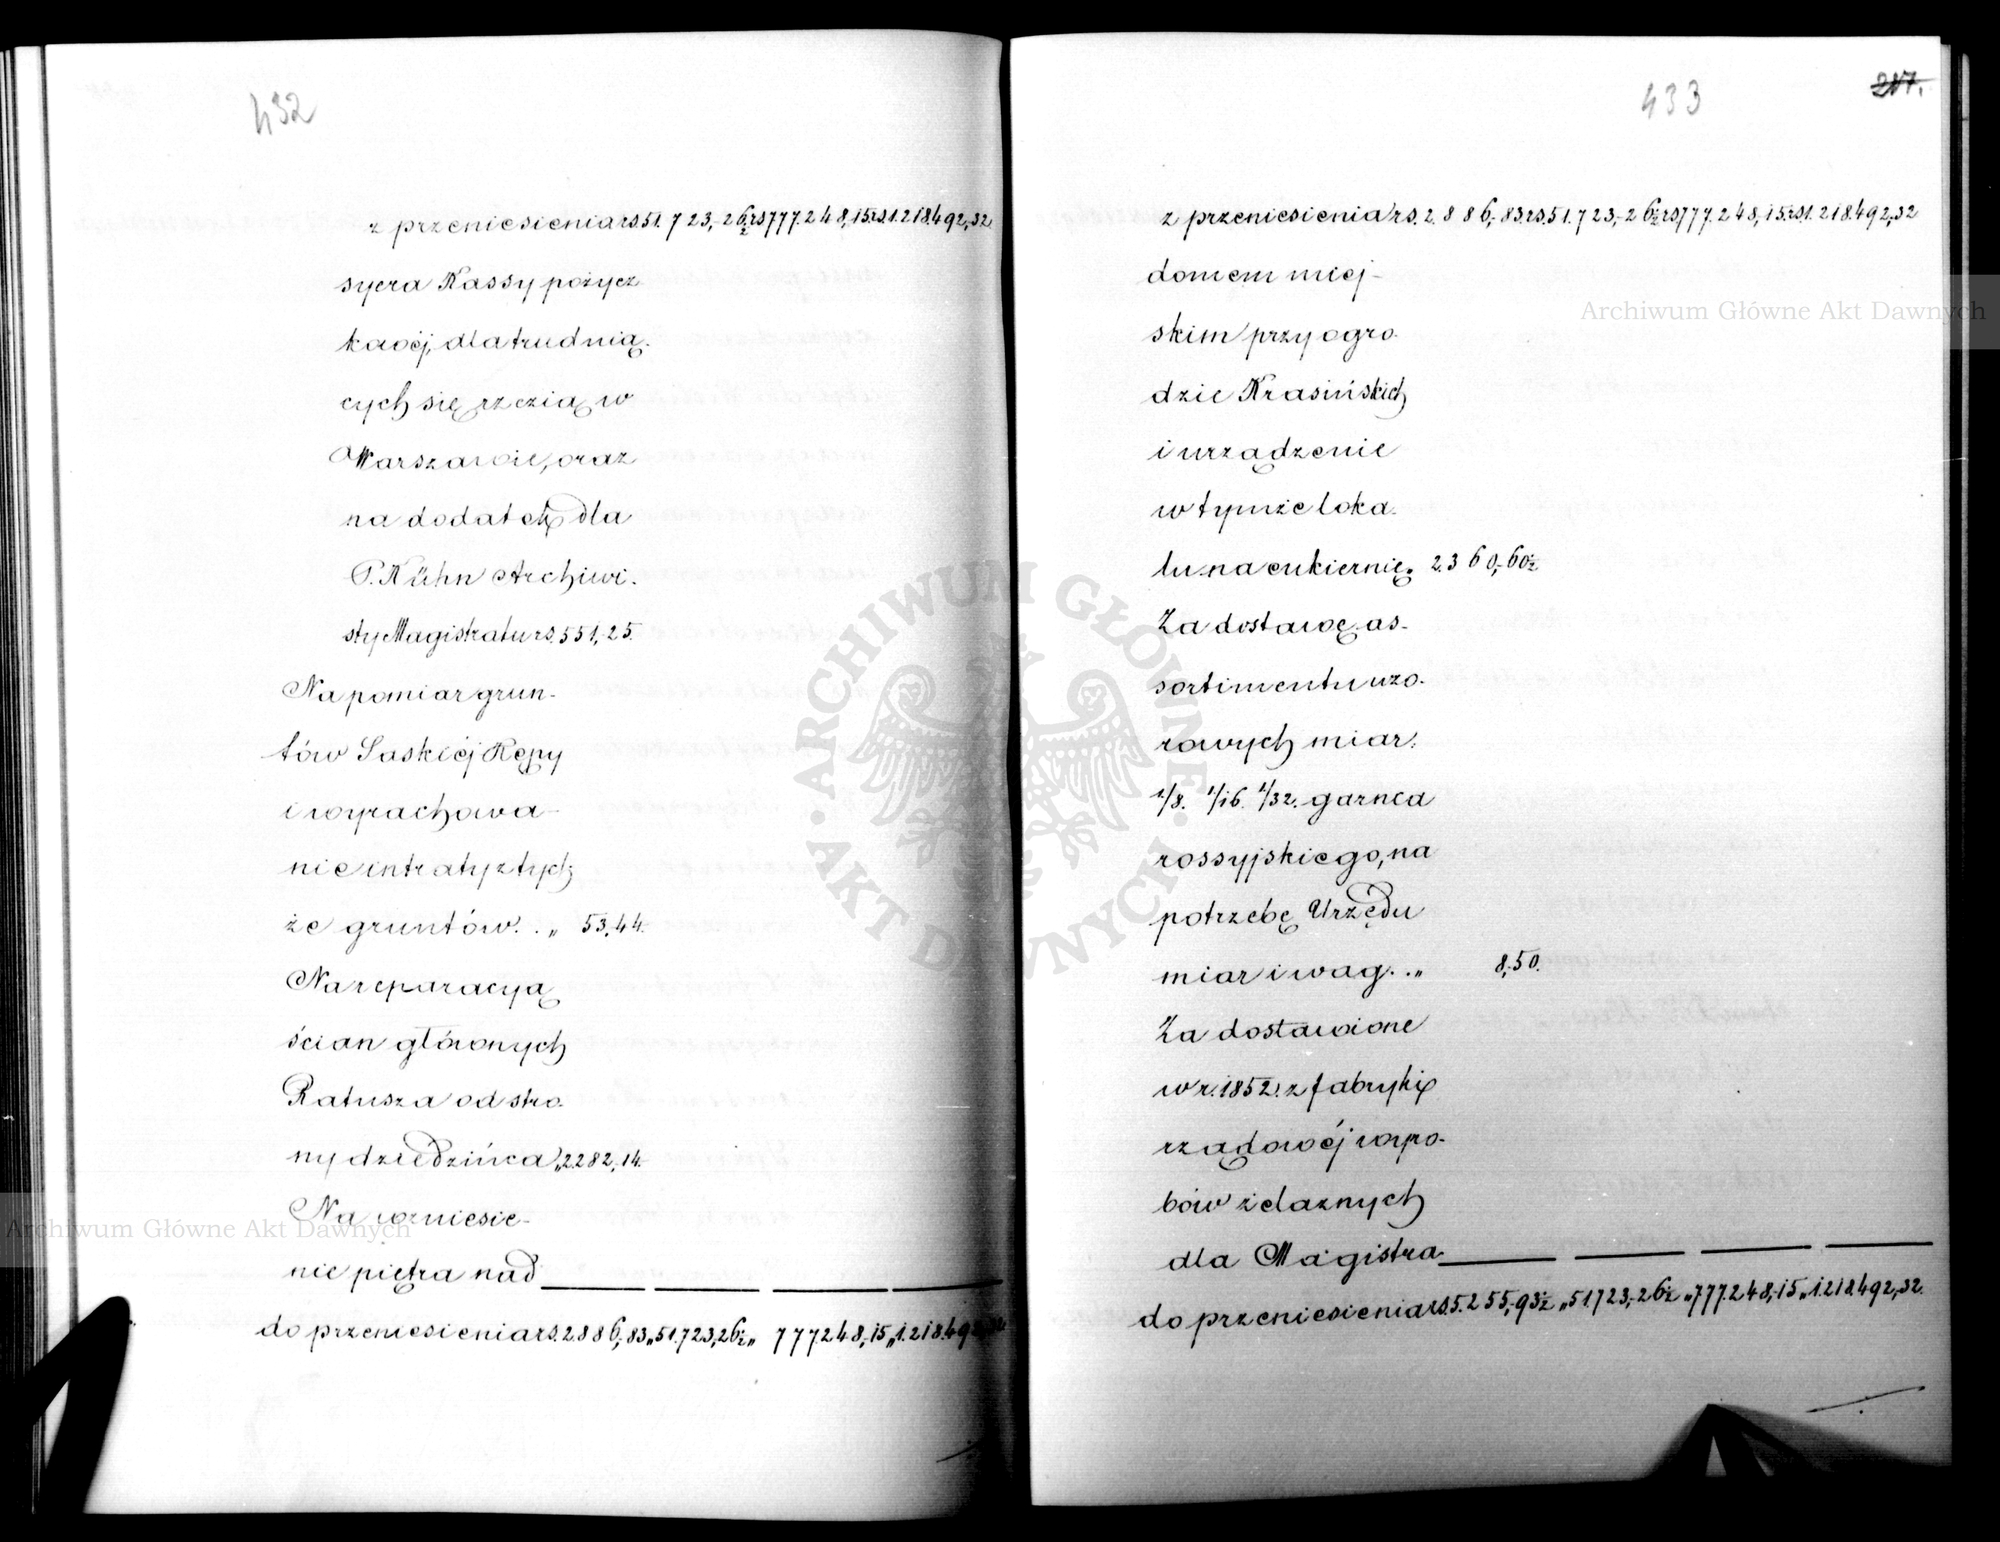 432
z przeniesienia rs. 51.723,-26½ rs 777.248,-15. rs. 1.218.492,32
syera Kassy pożycz
kowéj, dla trudnią.
cych się rzezią w
Warszawie, oraz
na dodatek dla
P. Kühn Archiwi.
sty Magistratu rs. 551,-25.
Na pomiar grun-
tów Saskiéj Kępy
i wyrachowa-
nie intraty z tych
że gruntów. . „ 53,44.
Na reparacyą
ścian głównych
Ratusza od stro.
ny dziedzińca „ 2282,-14.
Na wzniesie-
nie piętra nad
do przeniesienia rs. 2886,-83 „ 51.723,-26½ „ 777248,-15 „ 1.218.492,32
433
217.
z przeniesienia rs. 2.886,-83. rs. 51.723,-26½ rs 777.248,-15. rs 1.218.492,-32
domem miej-
skim przy ogro.
dzie Krasińskich
i urządzenie
w tymże loka.
lu na cukiernię „ 2.360,-60½
Za dostawę as-
sortimentu wzo.
rowych miar:
1/8. 1/16. 1/32. garnca
rossyjskiego, na
potrzebę Urzędu
miar i wag. . „ 8,-50.
Za dostawione
w r. 1852. z fabryki
rządowéj wyro-
bów żelaznych
dla Magistra
do przeniesienia rs. 5.255,-93½ „ 51.723,-26½ „ 777.248,-15 „ 1.218.492,-32.
Archiwum Główne Akt Dawnych
Archiwum Główne Akt Dawnych
ARCHIWUM GŁÓWNE AKT DAWNYCH